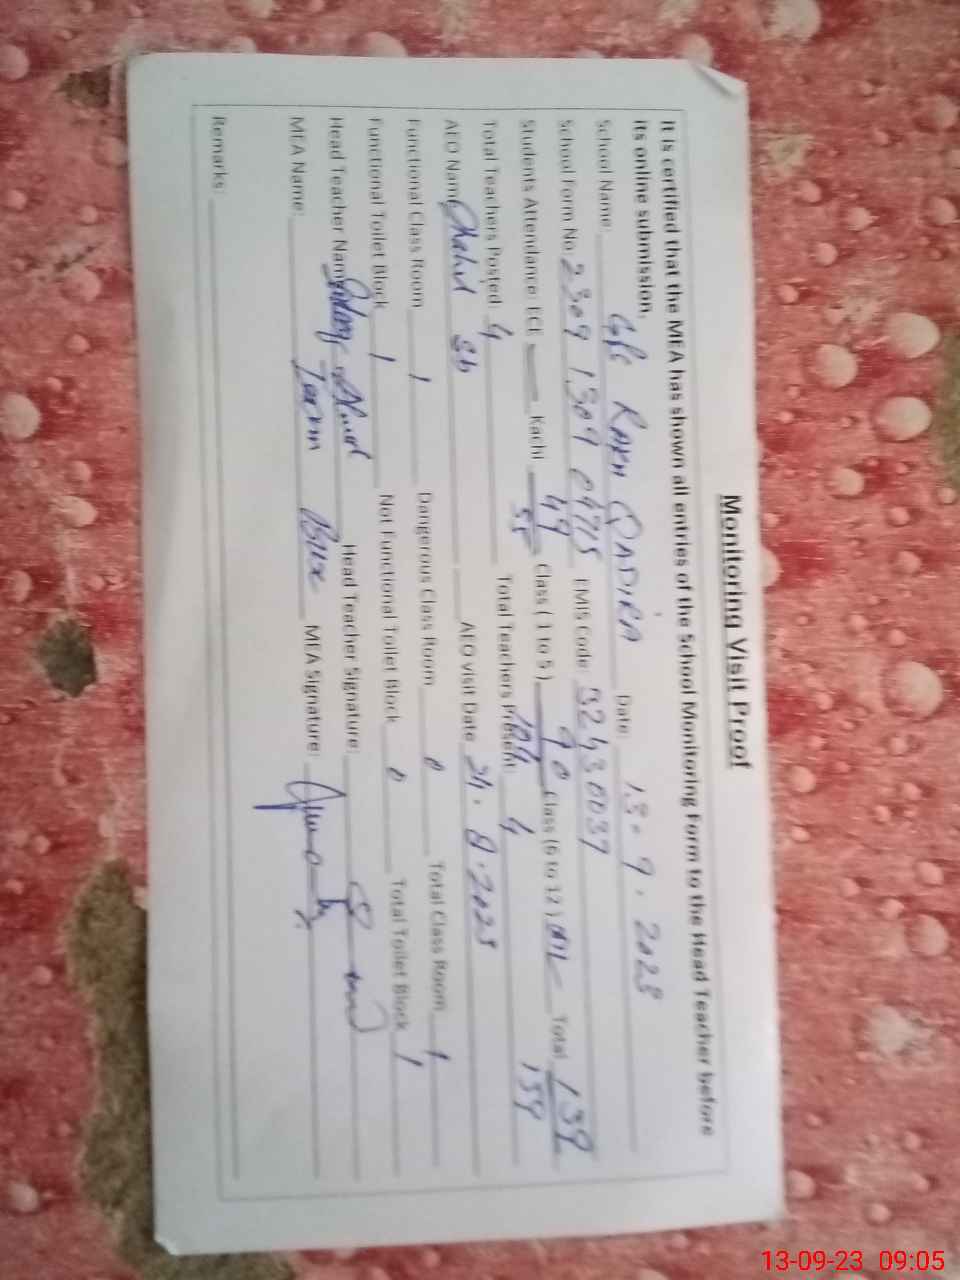 Monitoring Visit Proof
It is certified that the MEA has shown all entries of the School Monitoring Form to the Head Teacher before
its online submission.
School Name: RAKH QADIRA Date: 13. 9. 2023
School Form No 2309 1309 0475 EMIS Code: 32430037
Students Attendance: ECE — Kachi 49/55 Class (1 to 5) 90/104 Class (6 to 12) NIL Total 139/159
Total Teachers Posted: 4 Total Teachers Present: 4
AEO Name Sb AEO Visit Date 24. 8. 2023
Functional Class Room 1 Dangerous Class Room 0 Total Class Room 1
Functional Toilet Block 1 Not Functional Toilet Block 0 Total Toilet Block 1
Head Teacher Name Head Teacher Signature:
MEA Name: Bux MEA Signature:
Remarks:
13-09-23 09:05